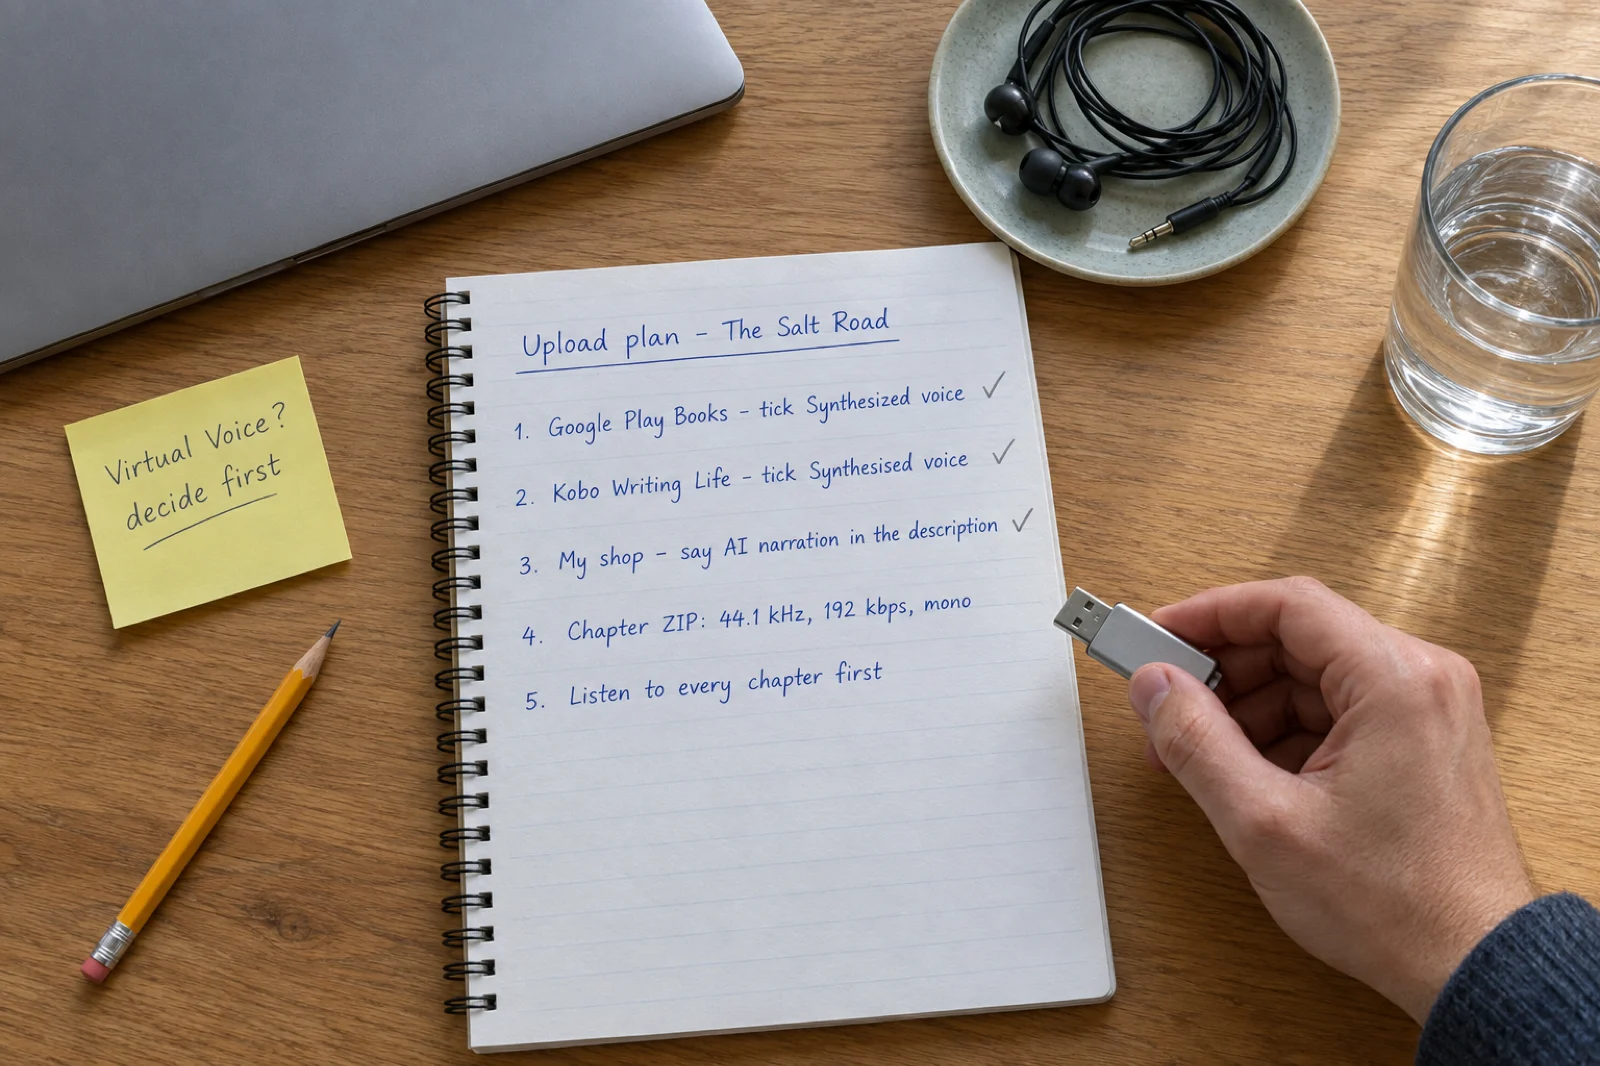 Upload plan – The Salt Road
1. Google Play Books – tick Synthesized voice ✓
2. Kobo Writing Life – tick Synthesised voice ✓
3. My shop – say AI narration in the description ✓
4. Chapter ZIP: 44.1 kHz, 192 kbps, mono
5. Listen to every chapter first
Virtual Voice?
decide first